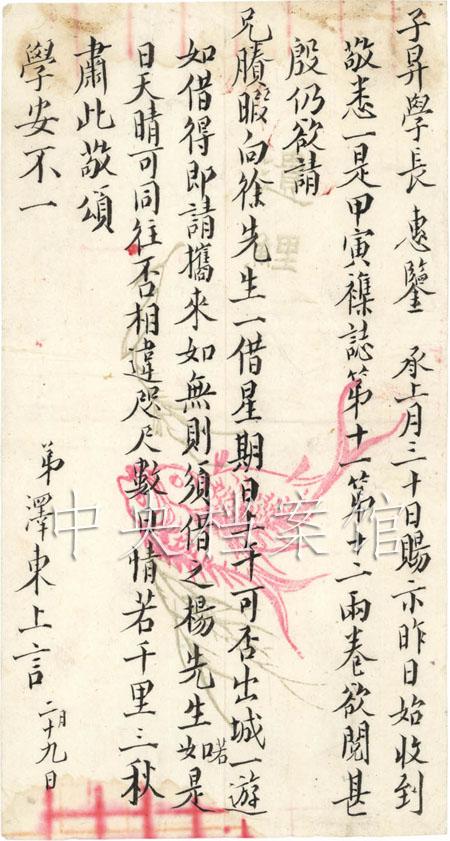 子昇學長 惠鑒 承上月三十日賜示昨日始收到
敬悉一是甲寅襍誌第十一第十二兩卷欲閱甚
殷仍欲請
兄賸暇向徐先生一借星期日上午可否出城一遊
如借得即請攜來如無則須借之楊先生如是
日天晴可同往否相違咫尺數日情若千里三秋
肅此敬頌
學安不一
弟澤東上言 二月十九日
中央档案馆